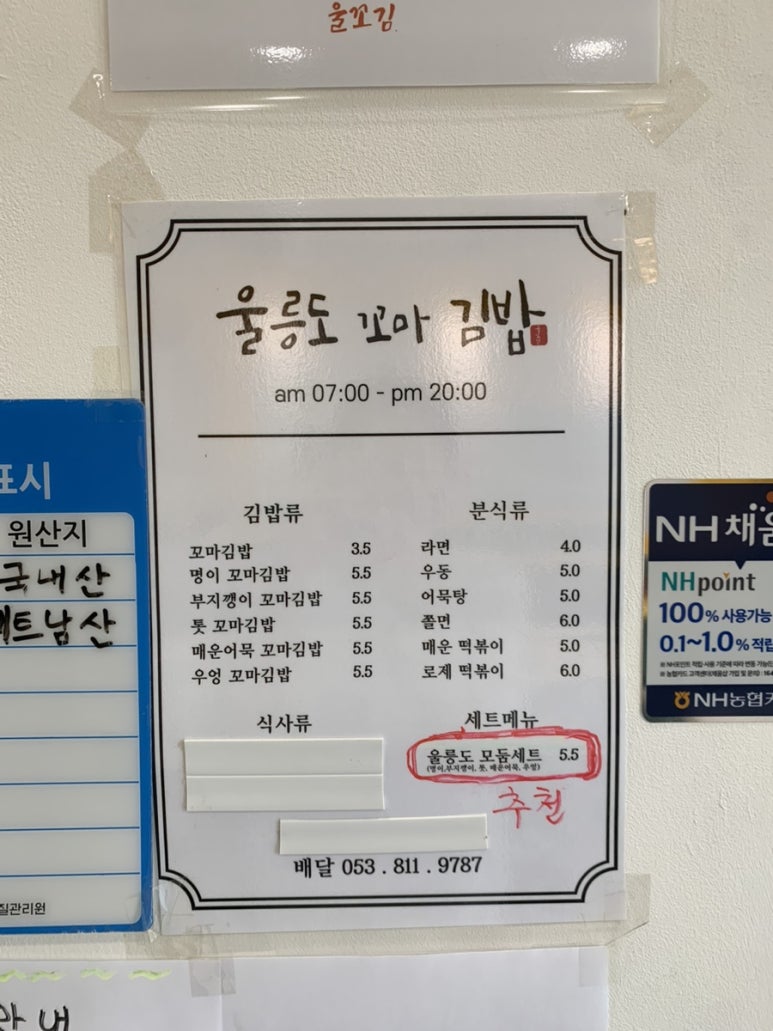 울꼬김
울릉도 꼬마 김밥
am 07:00 - pm 20:00
김밥류
꼬마김밥 3.5
명이 꼬마김밥 5.5
부지깽이 꼬마김밥 5.5
톳 꼬마김밥 5.5
매운어묵 꼬마김밥 5.5
우엉 꼬마김밥 5.5
분식류
라면 4.0
우동 5.0
어묵탕 5.0
쫄면 6.0
매운 떡볶이 5.0
로제 떡볶이 6.0
식사류
세트메뉴
울릉도 모둠세트 5.5
(명이,부지깽이, 톳, 매운어묵, 우엉)
추천
배달 053 . 811 . 9787
표시
원산지
국내산
베트남산
질관리원
NH채움
NHpoint
100% 사용가능
0.1~1.0% 적립
NH농협카
안내